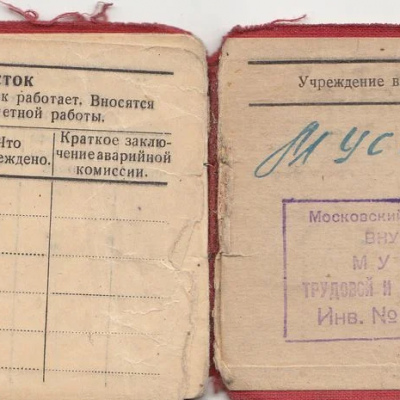 сток
к работает. Вносятся
етной работы.
Что
еждено.
Краткое заклю-
чение аварийной
комиссии.
Учреждение в
МУС
Московский
ВНУ
МУ
ТРУДОВОЙ И
Инв. №